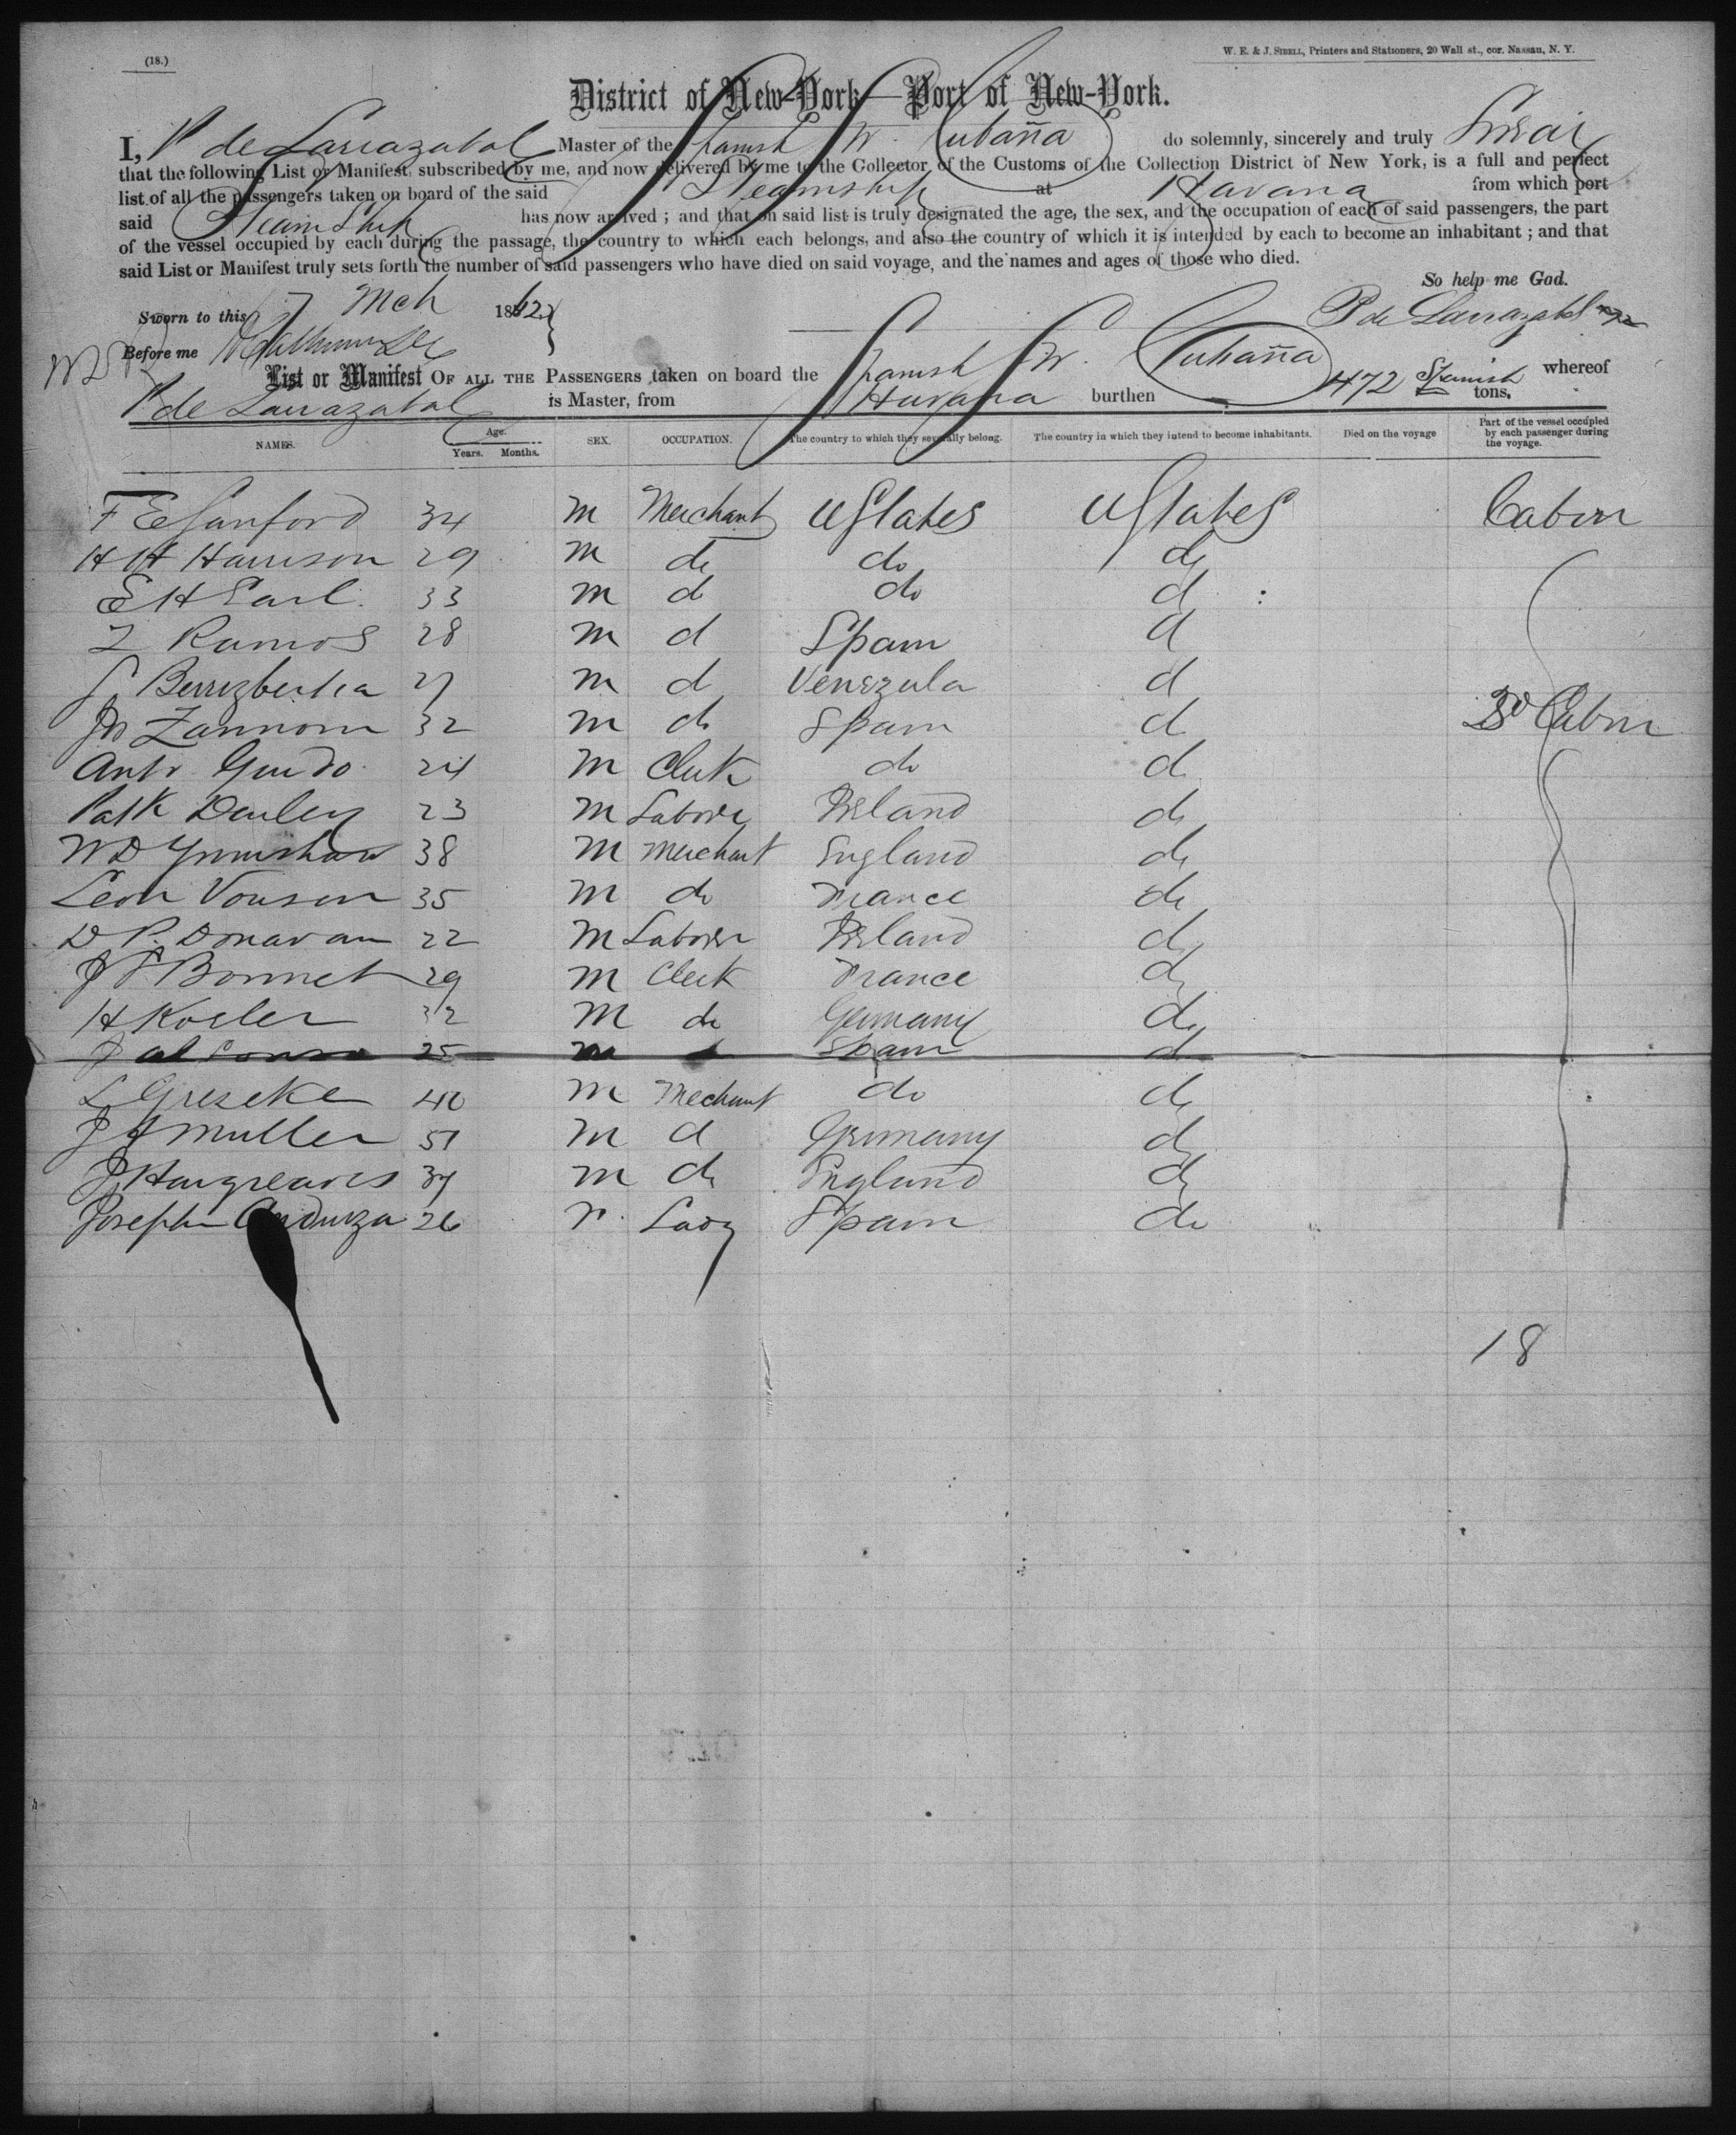 (18.)
W. E. & J. Sibell, Printers and Stationers, 20 Wall st., cor. Nassau, N. Y.
District of New-York—Port of New-York.
I, P de Larrazabal Master of the Spanish Cubaña do solemnly, sincerely and truly Swear
that the following List or Manifest, subscribed by me, and now delivered by me to the Collector of the Customs of the Collection District of New York, is a full and perfect
list of all the passengers taken on board of the said Steamship at Havana from which port
said Steam Ship has now arrived; and that on said list is truly designated the age, the sex, and the occupation of each of said passengers, the part
of the vessel occupied by each during the passage, the country to which each belongs, and also the country of which it is intended by each to become an inhabitant; and that
said List or Manifest truly sets forth the number of said passengers who have died on said voyage, and the names and ages of those who died.
So help me God.
Sworn to this 7 Mch 1862
P de Larrazabal
Before me
List or Manifest OF ALL THE PASSENGERS taken on board the Spanish Cubaña whereof
P de Larrazabal is Master, from Havana burthen 472 Spanish tons.
NAMES. Age. Years. Months. SEX. OCCUPATION. The country to which they severally belong. The country in which they intend to become inhabitants. Died on the voyage Part of the vessel occupied by each passenger during the voyage.
F E Sanford 34 m Merchant U States U States Cabin
H H Harrison 29 m do do do
E H Earl 33 m d do d
Z Ramos 28 m d Spain d
Berrizbeitia 27 m d Venezula d
Jos Zannoni 32 m do Spain d 2d Cabin
Anto Guido 24 m Clerk do d
Patk Denley 23 m Laborer Ireland do
W D Grimshaw 38 m Merchant England do
Leon Vonson 35 m do France do
D P. Donavan 22 m Laborer Ireland do
J F Bonnet 29 m Clerk France do
H Kosler 32 m do Germany do
J alfonso 25 m d Spain d
L Greseke 40 m Mechant do do
J A Muller 51 m d Germany do
J Hargreaves 37 m do England do
Josephine Anduiza 26 F. Lady Spain do
18